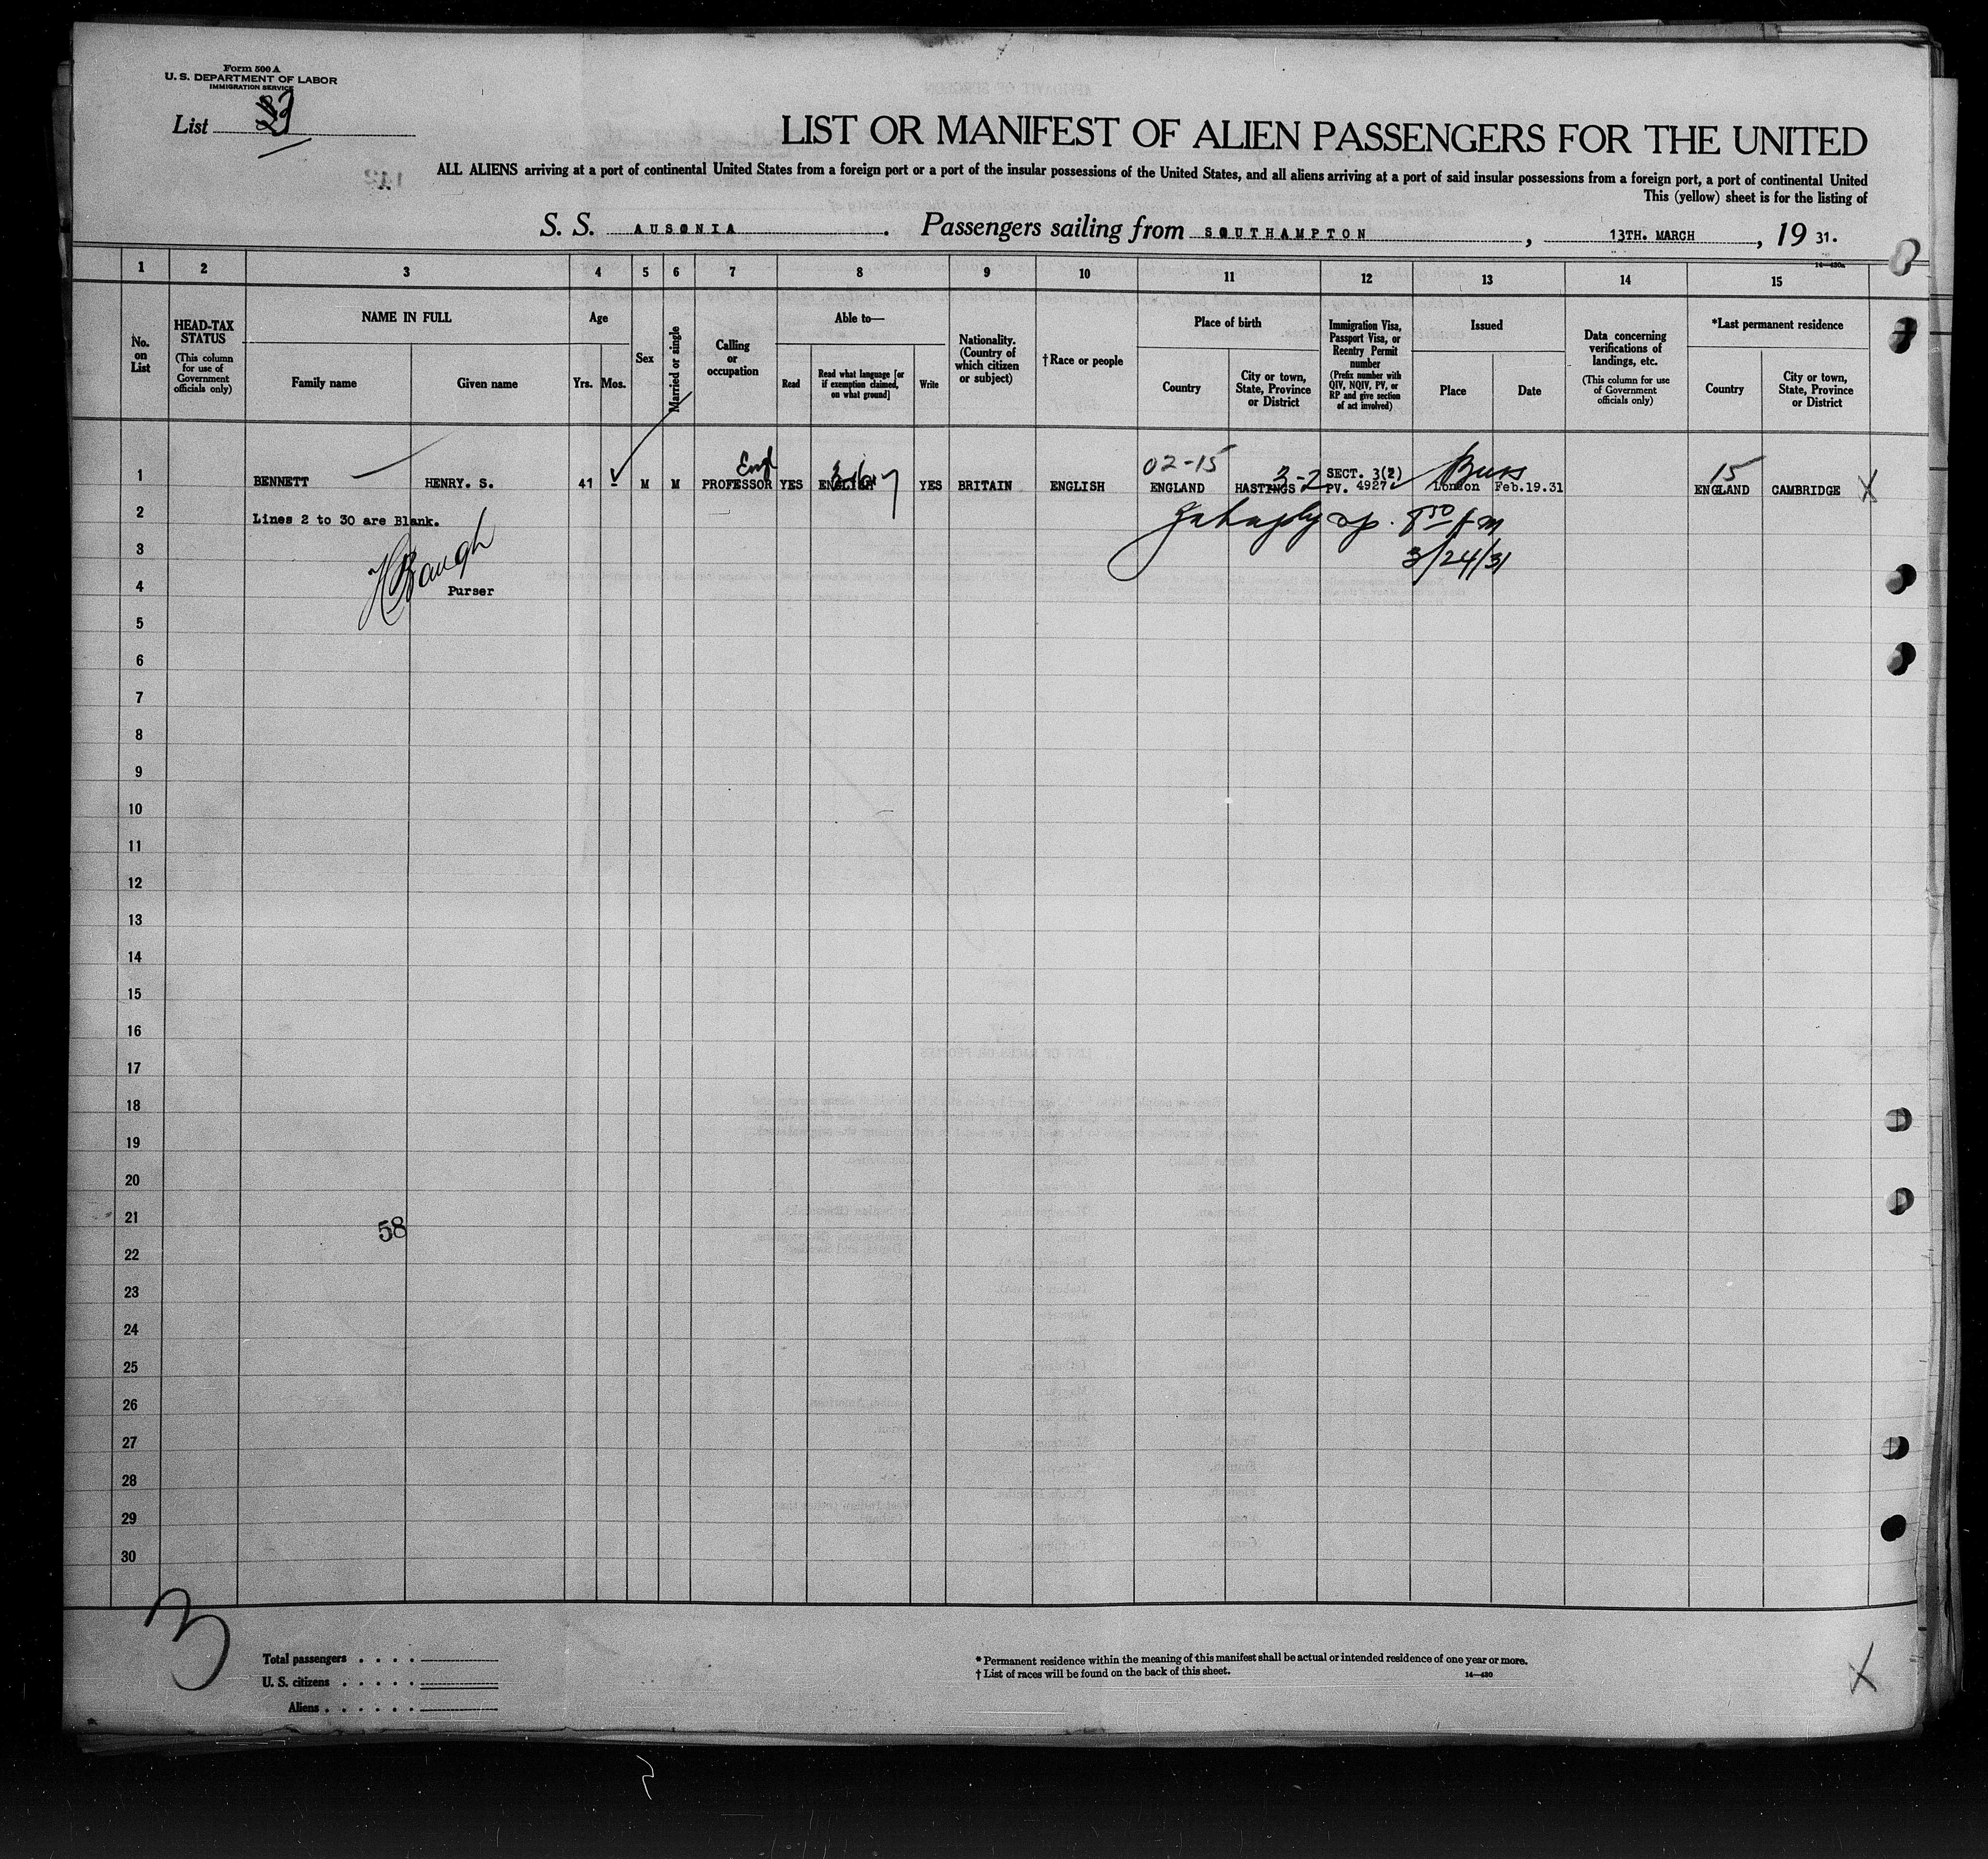 Form 500 A
U. S. DEPARTMENT OF LABOR
IMMIGRATION SERVICE
List
LIST OR MANIFEST OF ALIEN PASSENGERS FOR THE UNITED
ALL ALIENS arriving at a port of continental United States from a foreign port or a port of the insular possessions of the United States, and all aliens arriving at a port of said insular possessions from a foreign port, a port of continental United
This (yellow) sheet is for the listing of
S. S. AUSONIA. Passengers sailing from SOUTHAMPTON, 13TH. MARCH, 19 31.
14—430a
1 2 3 4 5 6 7 8 9 10 11 12 13 14 15
No. on List
HEAD-TAX STATUS (This column for use of Government officials only)
NAME IN FULL
Family name Given name
Age
Yrs. Mos.
Sex
Married or single
Calling or occupation
Able to—
Read Read what language [or if exemption claimed, on what ground] Write
Nationality. (Country of which citizen or subject)
†Race or people
Place of birth
Country City or town, State, Province or District
Immigration Visa, Passport Visa, or Reentry Permit number (Prefix number with QIV, NQIV, PV, or RP and give section of act involved)
Issued
Place Date
Data concerning verifications of landings, etc. (This column for use of Government officials only)
*Last permanent residence
Country City or town, State, Province or District
Eng 02-15 3-2 SECT. 3(2) 15
1 BENNETT HENRY. S. 41 - M M PROFESSOR YES ENGLISH YES BRITAIN ENGLISH ENGLAND HASTINGS PV. 4927 London Feb.19.31 ENGLAND CAMBRIDGE X
2 Lines 2 to 30 are Blank.
3 3/24/31
4 Purser
5
6
7
8
9
10
11
12
13
14
15
16
17
18
19
20
21 58
22
23
24
25
26
27
28
29
30
3
Total passengers . . . .
U. S. citizens . . . . .
Aliens . . . . . .
* Permanent residence within the meaning of this manifest shall be actual or intended residence of one year or more.
† List of races will be found on the back of this sheet. 14—430
X